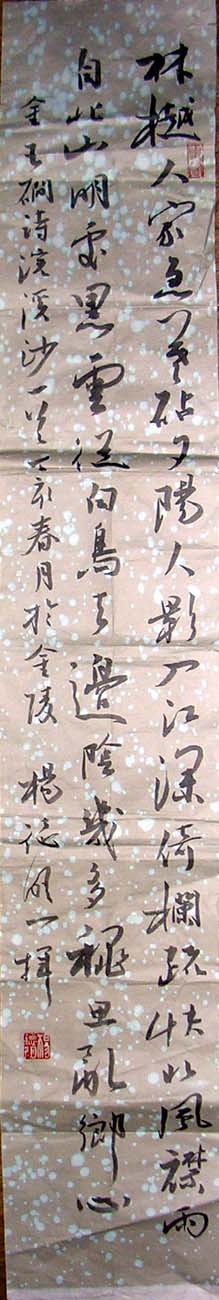 林樾人家急暮砧夕陽人影入江深倚欄疏快北風襟雨
自北山明處黑雲從白鳥去邊陰幾多秋思亂鄉心
金王磵詩浣溪沙一首丁亥春月於金陵 楊德一揮